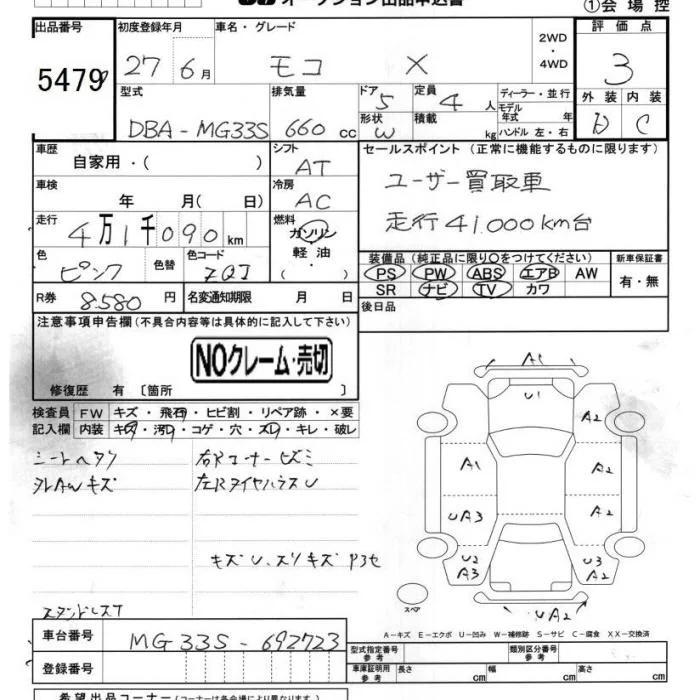 オークション出品申込書 ①会場控
出品番号 初度登録年月 車名・グレード 2WD・4WD 評価点
5479 27 6月 モコ X 3
型式 排気量 ドア 5 定員 4人 ディーラー・並行 外装 内装
DBA-MG33S 660 cc 形状 W 積載 kg モデル年式 年 ハンドル 左・右 D C
車歴 シフト セールスポイント(正常に機能するものに限ります)
自家用・( ) AT
車検 年 月( 日) 冷房 AC ユーザー買取車
走行 4万1千090km 燃料 ガソリン 軽油・( ) 走行41,000km台
色 ピンク 色替 色コード ZQJ 装備品(純正品に限り○をつけてください) 新車保証書
PS PW ABS エアB AW 有・無
SR ナビ TV カワ
R券 8,580円 名変通知期限 月 日 後日品
注意事項申告欄(不具合内容等は具体的に記入して下さい)
NOクレーム・売切
修復歴 有〔箇所 〕
検査員 FW キズ・飛石・ヒビ割・リペア跡・×要
記入欄 内装 キズ・汚レ・コゲ・穴・スレ・キレ・破レ
シートヘタリ 右Rコーナーヒズミ
外AWキズ 左RタイヤハウスU
キズU、スリキズ P3セ
A1
U1
A2
A1 A2
UA3 A2
U2 U3
A3 A2
UA2
スペア
A-キズ E-エクボ U-凹み W-補修跡 S-サビ C-腐食 XX-交換済
車台番号 MG33S-692723 型式指定番号 参考 類別区分番号 参考
登録番号 車庫証明用 参考 長さ cm 幅 cm 高さ cm
希望出品コーナー(コーナーは各会場により異なります)